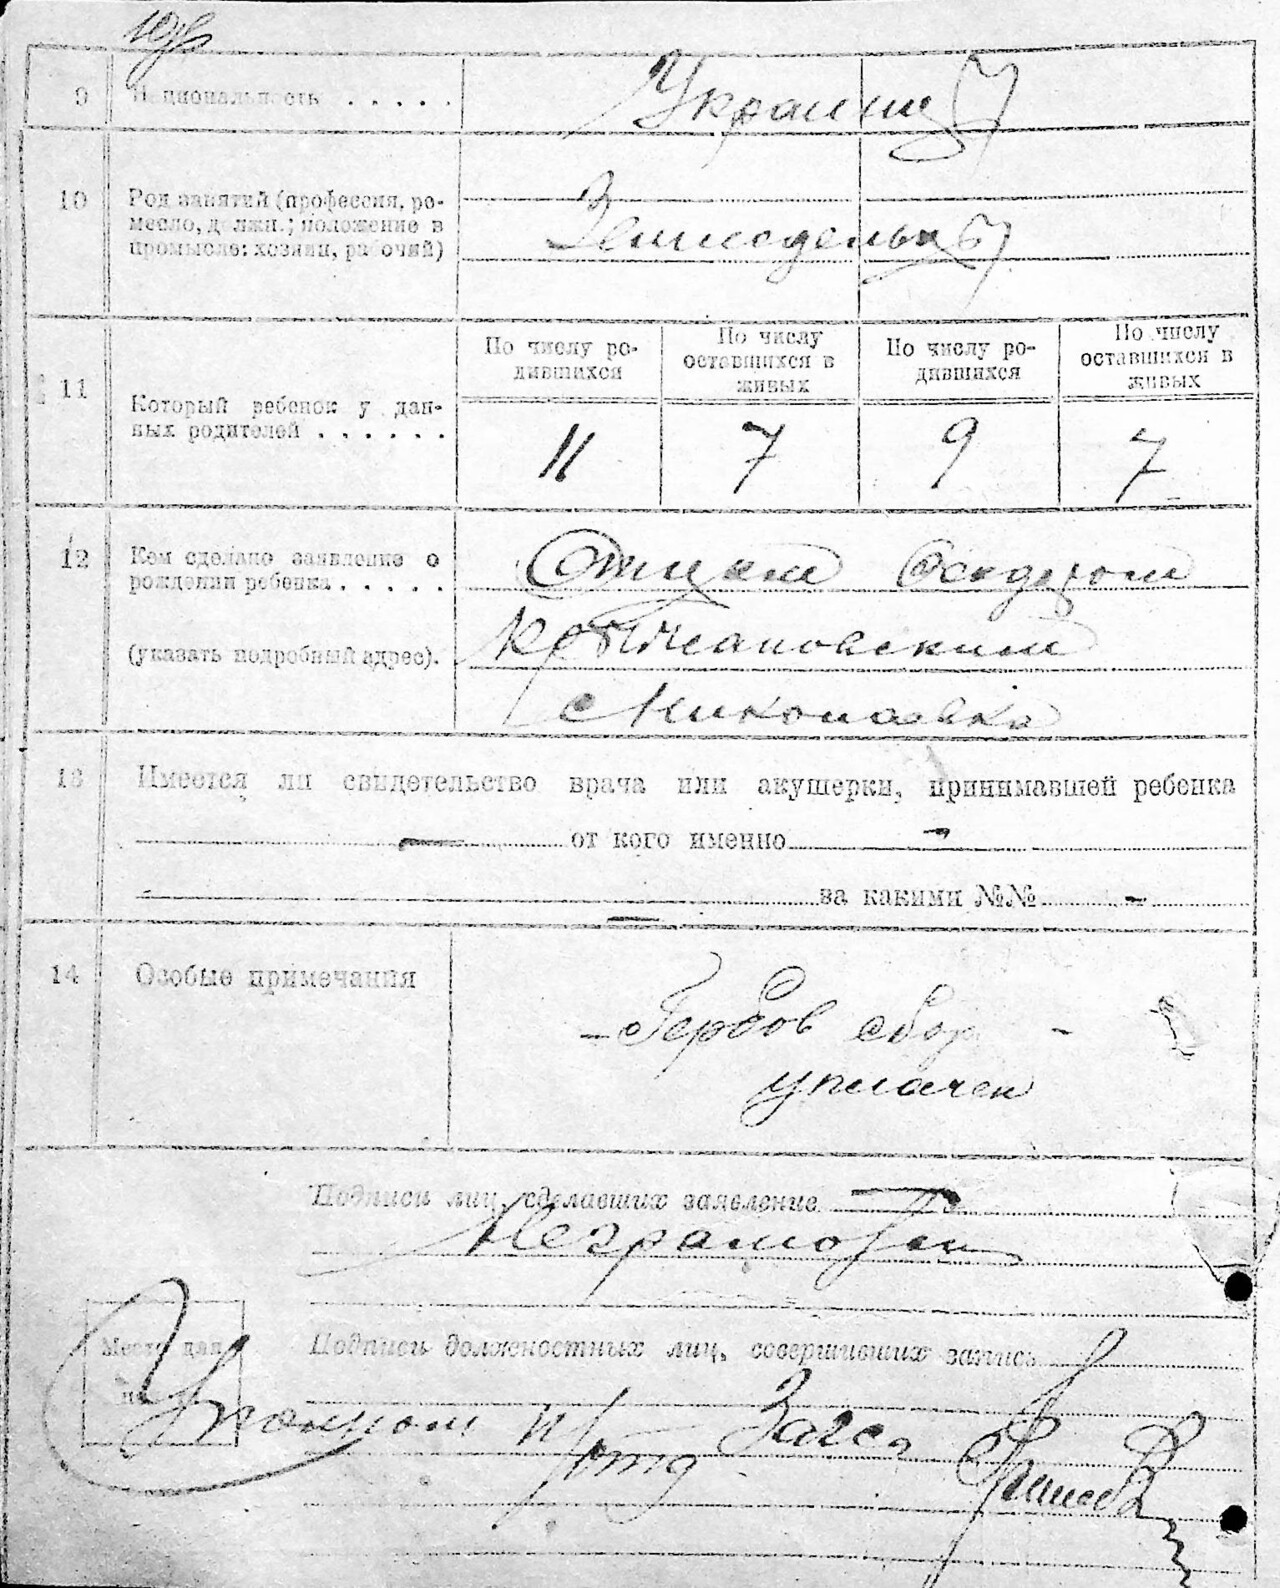 9 Национальность . . . . . Украинцы
10 Род занятий (профессия, ре-
месло, должн.; положение в
промысле: хозяин, рабочий)
Земледельцы
11 Который ребенок у дан-
ных родителей . . . . . .
По числу ро-
дившихся
По числу
оставшихся в
живых
По числу ро-
дившихся
По числу
оставшихся в
живых
11 7 9 7
12 Кем сделано заявление о
рождении ребенка . . . . .
(указать подробный адрес).
Отцом
с Николаевка
13 Имеется ли свидетельство врача или акушерки, принимавшей ребенка
— от кого именно —
за какими №№ -
14 Особые примечания
- Гербов сбор -
уплачен
Подписи лиц, сделавших заявление
Неграмотен
Место для
Подписи должностных лиц, совершивших запись
Загса